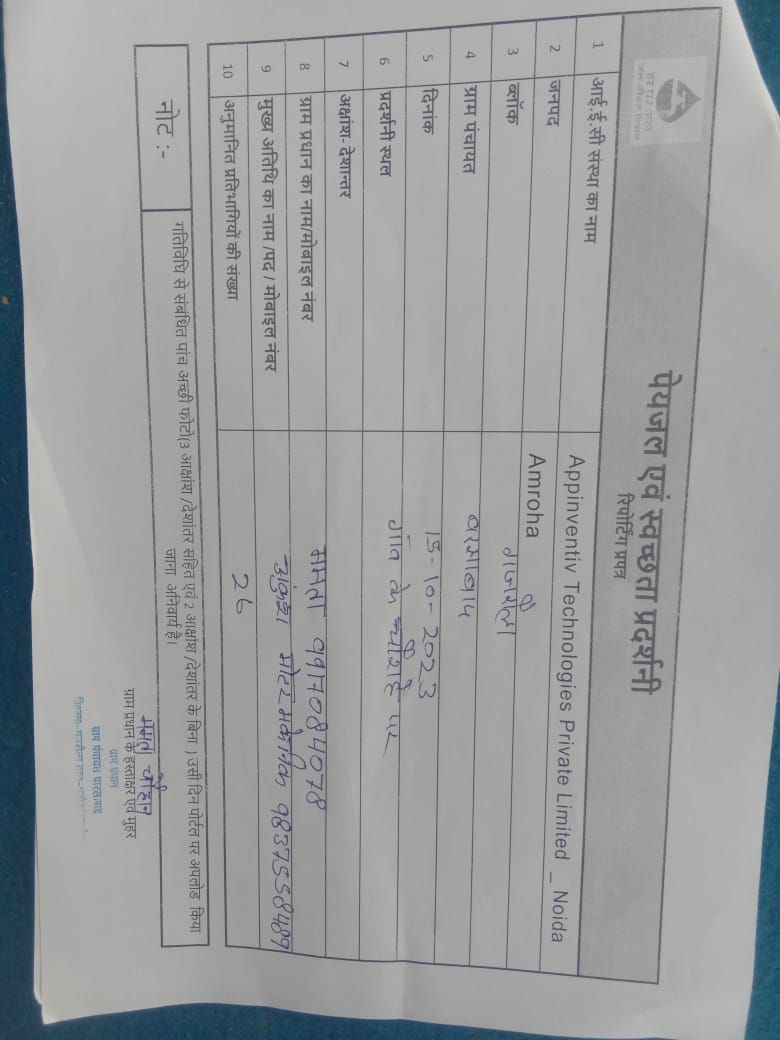 हर घर जल
जल जीवन मिशन
पेयजल एवं स्वच्छता प्रदर्शनी
रिपोर्टिंग प्रपत्र
1 आई.ई.सी संस्था का नाम Appinventiv Technologies Private Limited _ Noida
2 जनपद Amroha
3 ब्लॉक गजरौला
4 ग्राम पंचायत
5 दिनांक 15-10-2023
6 प्रदर्शनी स्थल गाँव के चौराहे पर
7 अक्षांश- देशान्तर
8 ग्राम प्रधान का नाम/मोबाइल नंबर ममता 9917084078
9 मुख्य अतिथि का नाम /पद / मोबाइल नंबर अंकुश मोटर मकेनिक 9837558489
10 अनुमानित प्रतिभागियों की संख्या 26
नोट :- गतिविधि से संबंधित पांच अच्छी फोटो(3 आक्षांश /देशांतर सहित एवं 2 आक्षांश /देशांतर के बिना ) उसी दिन पोर्टल पर अपलोड किया
जाना अनिवार्य है।
ममता चौहान
ग्राम प्रधान के हस्ताक्षर एवं मुहर
ग्राम प्रधान
ग्राम पंचायत